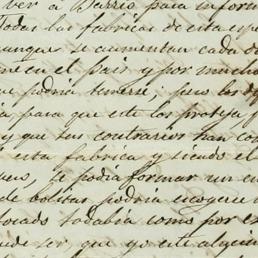 ver á Barrio para inform
Todas las fabricas de esta espe
aunque se aumentan cada d
ne en el pais, y por mucho
que podria tenerse; pero los de
ia para que este los proteja p
y que sus contrarios han co
esta fabrica y siendo el
se podia formar un en
de bolitas podria escogerse
tocado todabia como por ex
de ser que yo este alguin